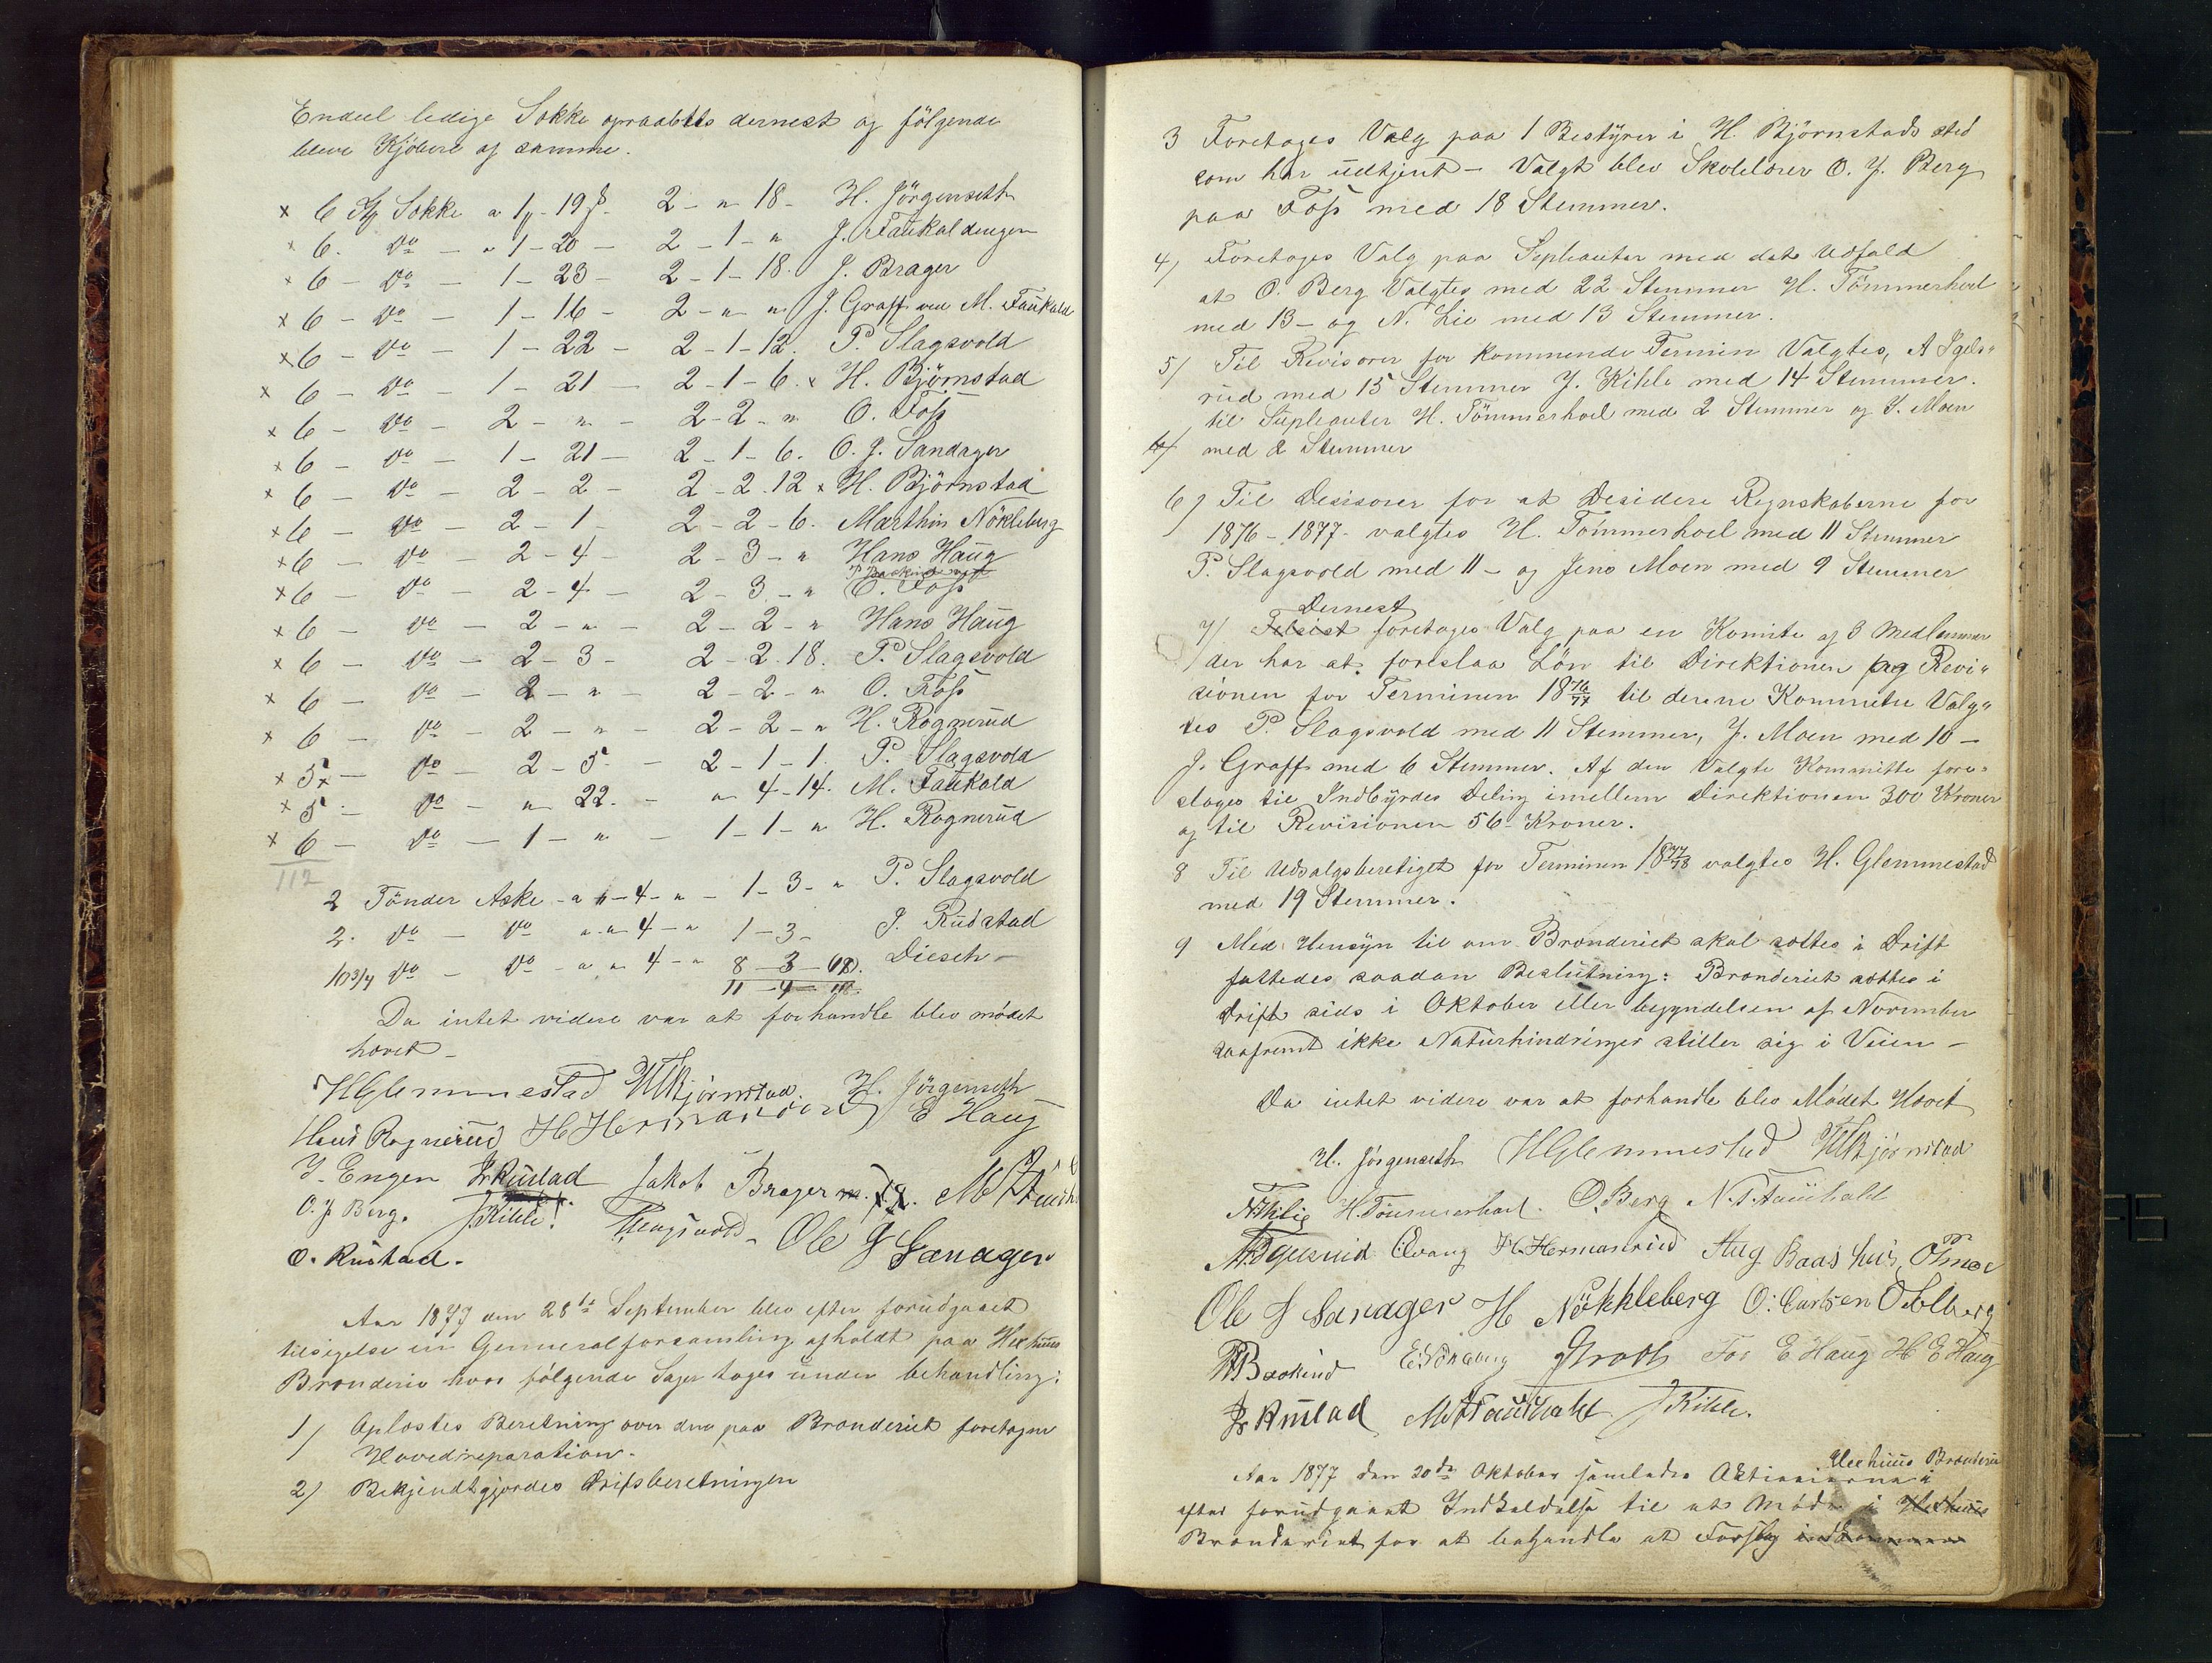 Endeel ledige Sække opraabtes dernest og fölgende
bleve Kjöbere af samme.
x 6 St Sække a 1 - 19 ß. 2 - " 18 - H. Jörgenseth
x 6. do - " 1 - 20 - 2 - 1 - " J. Faukaldengen
x 6 - do - 1 - 23 - 2 - 1 - 18. J. Brager
x 6 - do - 1 - 16 - 2 - " " J. Graff ved M. Faukald
x 6 - do - 1 - 22 - 2 - 1 - 12. P. Slagsvold
x 6 - do - 1 - 21 - 2 - 1 - 6. x H. Björnstad
x 6 - do - 2 - " - 2 - 2 - " O. Foss
x 6 - do - 1 - 21 - 2 - 1 - 6. O. J. Sandager
x 6 - do - 2 - 2 - 2 - 2. 12 x H. Björnstad
x 6 - do - 2 - 1 - 2 - 2 - 6. Marthin Nökleberg
x 6 - do - 2 - 4 - 2 - 3 - " Hans Haug
x 6 - do - 2 - 4 - 2 - 3 - " O. Foss
x 6 - do - 2 - " - 2 - 2 - " Hans Haug
x 6 - do - 2 - 3 - 2 - 2. 18. P. Slagsvold
x 6 - do - 2 - " - 2 - 2 - " O. Foss
x 6 - do - 2 - " - 2 - 2 - " H. Rognerud
x 5x - do - 2 - 5 - 2 - 1 - 1. P. Slagsvold
x 5 - do - " 22. - " 4 - 14. M. Faukald
x 6 - do - 1 - " - 1 - 1 - " H. Rognerud
112
2 Tönder Aske - a " - 4 - " - 1 - 3 - " P. Slagsvold
2. do - do " - " 4 - " 1 - 3 - J. Rudstad
10 3/4 do - do - " " 4 - " 8 - 3 - 18. Diesch -
11 - 4 - 18.
Da intet videre var at forhandle blev mødet
hævet -
HGlemmestad HBjörnstad. H. Jörgenseth
Hans Rognerud H Hermanrud E Haug
J. Engen Jr Rustad Jakob Brager M
O. J Berg. J Kihle. PSlagsvold - Ole J Sanager
O. Rustad.
Aar 1877 den 28de September blev efter forudgaaet
tilsigelse en Generalforsamling afholdt paa Hexhuus
Brænderie hvor følgende Sager toges under behandling:
1) Oplæstes Beretning over den paa Brænderiet foretagne
Hovedreparation.
2) Bekjendtgjordes Driftsberetningen
3 Foretoges Valg paa 1 Bestyrer i H. Björnstads sted
som har udtjent - Valgt blev Skolelærer O. J. Berg
paa Foss med 18 Stemmer.
4) Foretoges Valg paa Supleanter med det Udfald
at O. Berg Valgtes med 22 Stemmer H. Tömmerhoel
med 13 - og N. Lie med 13 Stemmer.
5) Til Revisorer for kommende Termin Valgtes, A Igels"
rud med 15 Stemmer J. Kihle med 14 Stemmer.
til Supleanter H. Tömmerhoel med 2 Stemmer og J. Moen
6) med 2 Stemmer
6) Til Desisorer for at Desidere Regnskaberne for
1876 - 1877 - valgtes H. Tömmerhoel med 11 Stemmer
P. Slagsvold med 11 - og Jens Moen med 9 Stemmer
Dernest
7) Felsist foretoges Valg paa en Komite af 3 Medlemmer
der har at foreslaa Løn til Direktionen og Revi"
sionen for Terminen 18 76/77 til denne Kommitee Valg"
tes P. Slagsvold med 11 Stemmer, J. Moen med 10 -
J. Graff med 6 Stemmer. Af den Valgte Kommitte fore=
sloges til Indbyrdes Deling imellem Direktionen 300 Kroner
og til Revisionen 56 - Kroner.
8 Til Udsalgsberetiget for Terminen 18 77/78 valgtes H. Glemmestad
med 19 Stemmer.
9 Med Hensyn til om Brænderiet skal sættes i Drift
fattedes saadan Beslutning: Brænderiet sættes i
Drift sids i Oktober eller begyndelsen af November
saafremt ikke Naturhindringer stiller sig i Veien -
Da intet videre var at forhandle blev Mödet Hævet
H. Jörgenseth HGlemmestad HBjörnstad
H. Tömmerhoel. O. Berg N. T. Faukald
Evang H. Hermanrud Aug Baashus
Ole J Sanager H Nökkleberg O: Carlsen
P Baskind E. Nökleberg For E Haug H E Haug
Jr Rustad M Faukald J Kihle.
Hexhuus Brænderie
Aar 1877 den 20de Oktober samledes Aktionærerne i
efter forudgaaet Indkaldelse til et Møde i Hexhuus
Brænderiet for at behandle et Forslag indkommen